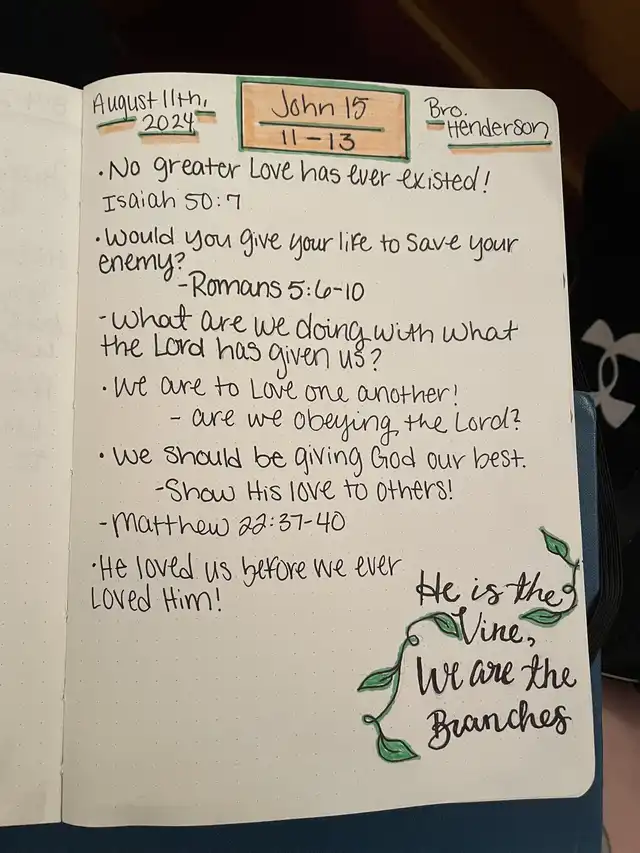 August 11th,
2024
John 15
11-13
Bro.
Henderson
· No greater Love has ever existed!
Isaiah 50:7
· Would you give your life to save your
enemy?
-Romans 5:6-10
- What are we doing with what
the Lord has given us?
· We are to Love one another!
- are we obeying the Lord?
· We should be giving God our best.
-Show His love to others!
-Matthew 22:37-40
· He loved us before we ever
Loved Him!
He is the
Vine,
We are the
Branches